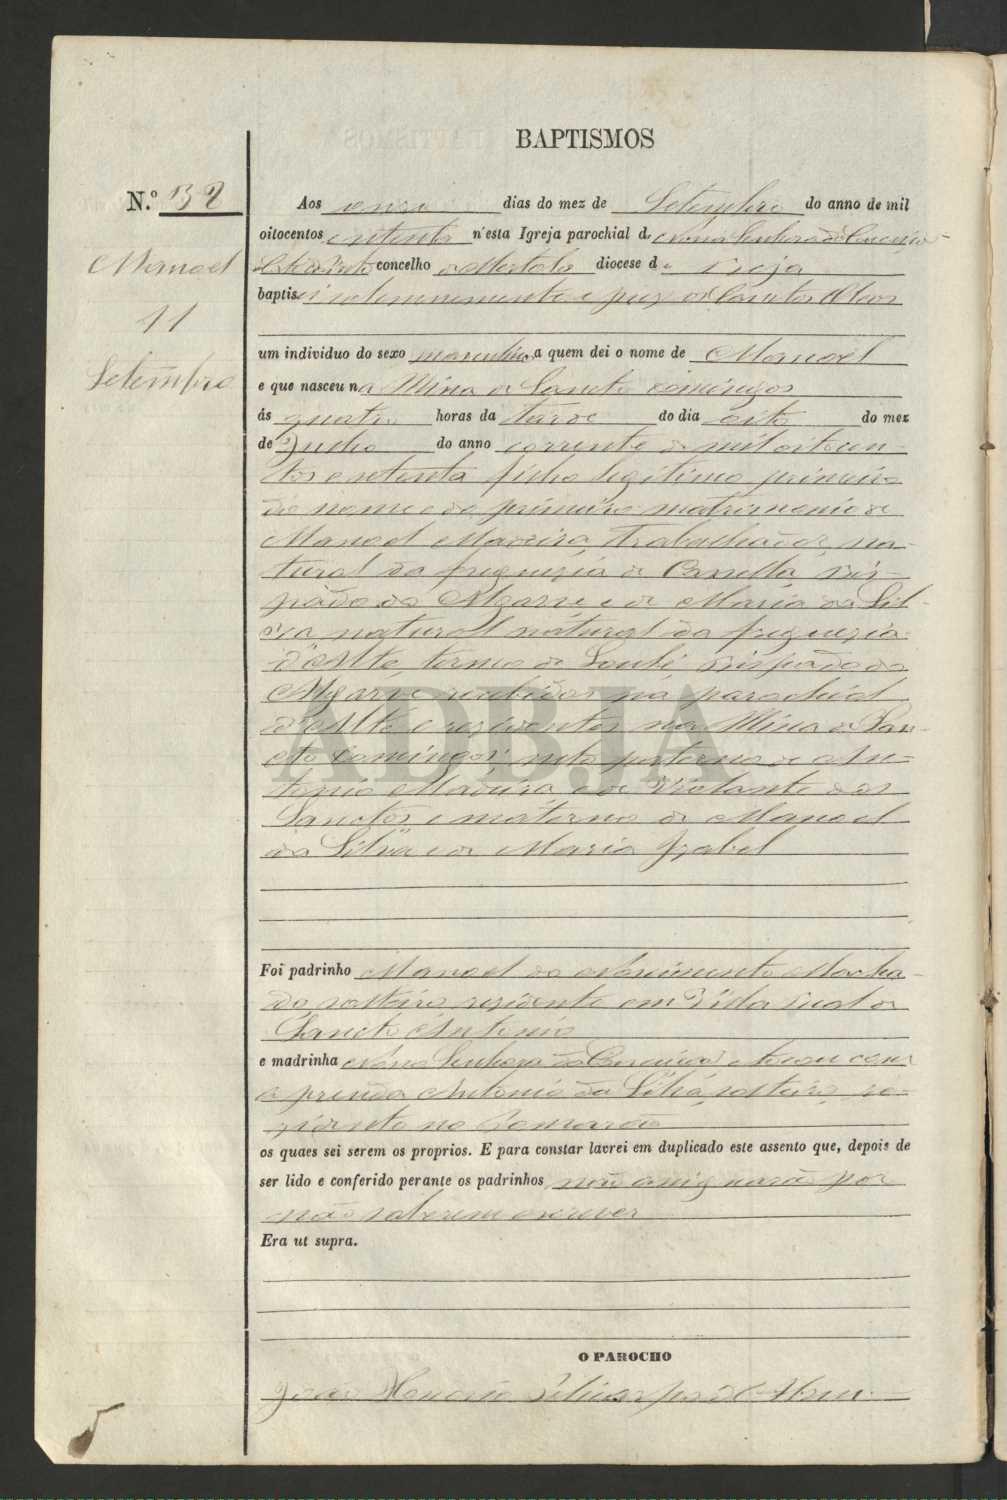 BAPTISMOS
N.º 132
Manoel
11
Setembro
Aos onze dias do mez de Setembro do anno de mil
oitocentos e setenta n'esta Igreja parochial de Nossa Senhora da Conceição
concelho de Mertola diocese de Beja
baptisei solemnemente e puz os Sanctos Oleos
um individuo do sexo masculino a quem dei o nome de Manoel
e que nasceu na Mina de Sancto Domingos
ás quatro horas da tarde do dia oito do mez
de Julho do anno corrente de mil oitocen
tos e setenta filho legitimo primeiro
do nome e do primeiro matrimonio de
Manoel Madeira, Trabalhador, na-
tural da freguezia de Cacella, Bis-
pado do Algarve e de Maria da Sil-
va natural natural da freguezia
d'Alte, termo de Loulé, Bispado do
Algarve recebidos na parochial
d'Alte e rezidentes na Mina de San-
cto Domingos; neto paterno de An-
tonio Madeira, e de Violante dos
Sanctos e materno de Manoel
da Silva e de Maria Izabel
Foi padrinho Manoel do Nascimento Macha-
do solteiro rezidente em Villa Real de
Sancto Antonio
e madrinha Nossa Senhora da Conceição e tocou com
a prenda Antonio da Silva, solteiro, re-
zidente no Pomarão
os quaes sei serem os proprios. E para constar lavrei em duplicado este assento que, depois de
ser lido e conferido perante os padrinhos não assignarão por
não saberem escrever
Era ut supra.
O PAROCHO
João
ADBJA